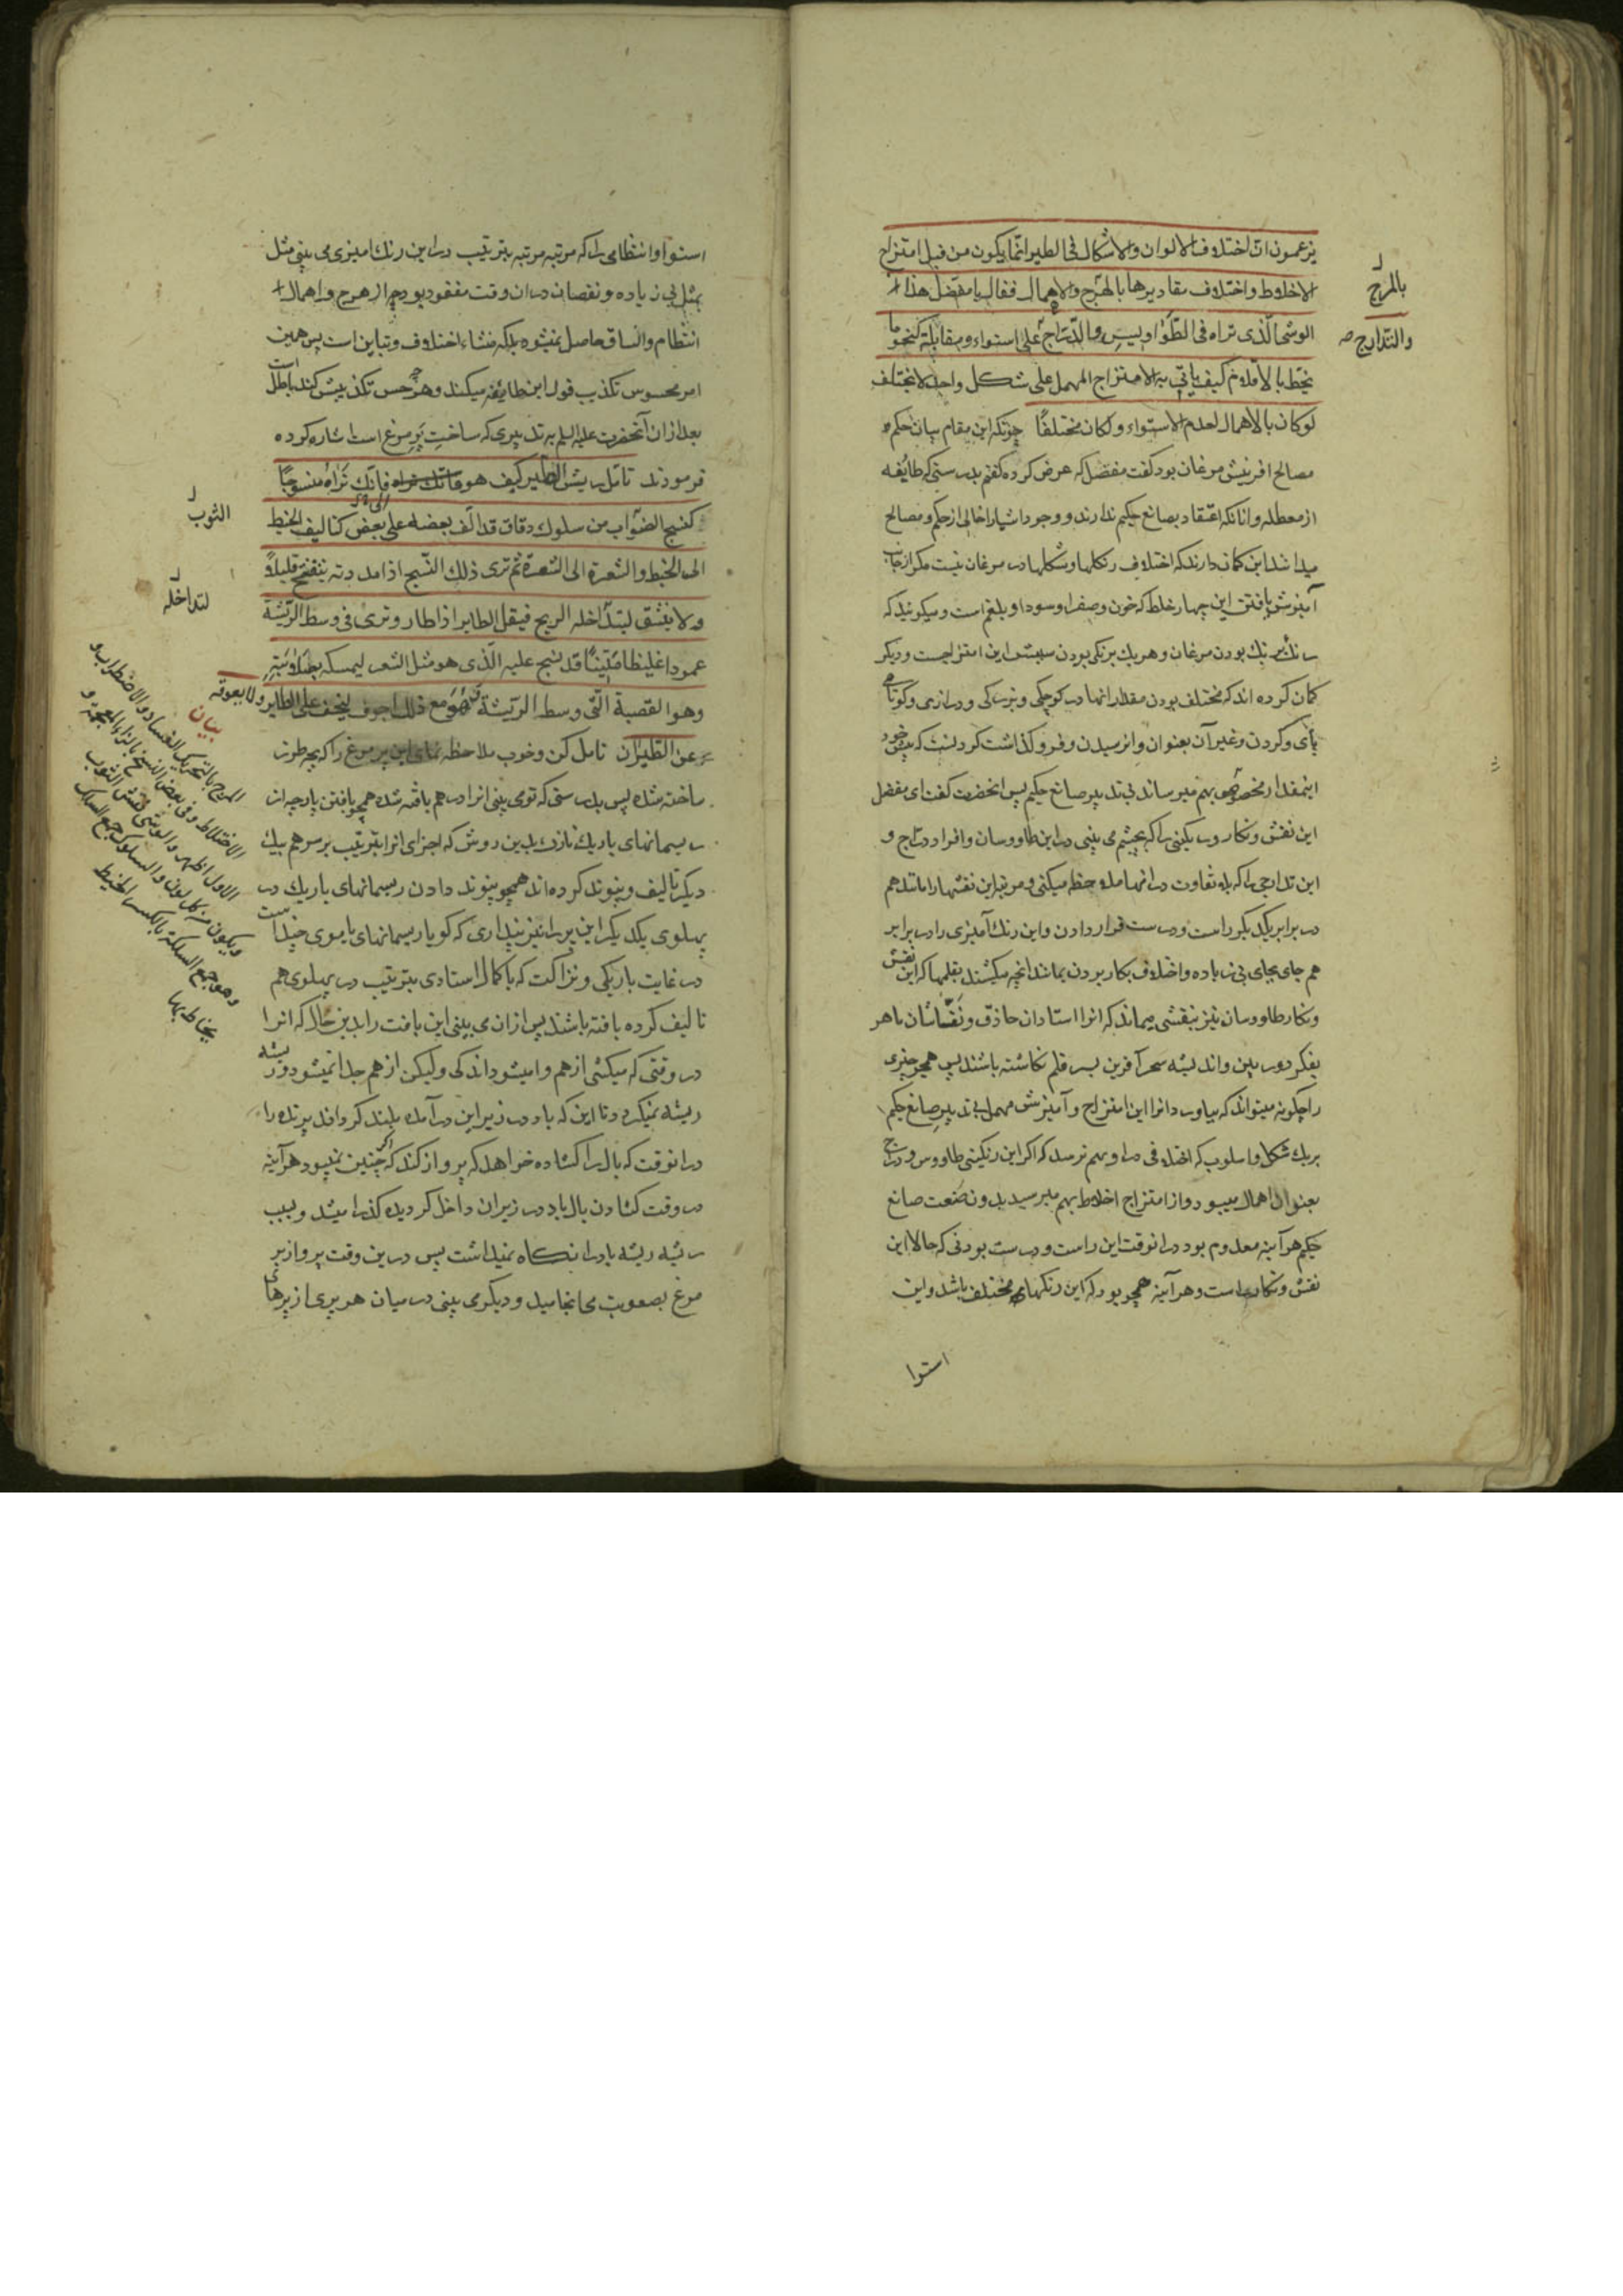 یزعمون ان اختلاف الالوان والاشکال فی الطیر انّما یکون من قبل امتزاج
الاخلاط واختلاف مقادیرها بالهرج والاهمال فقال یا مفضل هذا
الوشی الّذی تراه فی الطّواویس والدّرّاج علی استواء ومقابلة کنحو ما
یخطّ بالاقلام کیف یأتی به الامتزاج المهمل علی شکل واحد لا یختلف
لو کان بالاهمال لعدم الاستواء ولکان مختلفًا چونکه این مقام بیان حکم
مصالح افرینش مرغان بود گفت مفضل که عرض کرده گفتم بدرستی که طایفه
از معطله وانانکه اعتقاد بصانع حکیم ندارند ووجود اشیا را خالی از حکم ومصالح
میدانند این کمان دارند که اختلاف رنکها وشکلها در مرغان نیست مکر از جانب
آمیزش یافتن این چهار خلط که خون وصفرا وسودا وبلغم است ومیکویند که
رنک برنک بودن مرغان وهر یک برنکی بودن سببش این امتزاجست ودیکر
کمان کرده اند که مختلف بودن مقدار انها در کوچکی وبزرکی ودرازی وکوتاهی
این نقش ونکار ورنکینی را که بچشم می بینی در این طاووسان وافراد درّاج و
این تدارجی را که بلا تفاوت در انها ملاحظه میکنی ومرتبه این نقشها را مانند هم
در برابر یکدیکر راست ودرست قرار دادن واین رنک آمیزی را در برابر
هم جای بجای بی زیاده واختلاف بکار بردن بمانند انچه میکشند بقلمها که این نقش
ونکار طاووسان نیز بنقشی میماند که انرا استادان حاذق ونقّاشان ماهر
بفکر دوربین واندیشه سحر آفرین بسر قلم نکاشته باشند پس همچو چیزی
را چکونه میتواند که بیاورد انرا این امتزاج وآمیزش مهمل بی تدبیر صانع حکیم
بریک شکل واسلوب که اختلافی در او بهم نرسد که اکر این رنکینی طاووس ودراج
بعنوان اهمال میبود واز امتزاج اخلاط بهم میرسید بدون صنعت صانع
حکیم هرآینه معدوم بود در انوقت این راست ودرست بودنی که حالا این
نقش ونکار راست وهرآینه همچو بود که این رنکهای مختلف باشد واین
استوا
بالمرج
والتدارج
استوا وانتظامی را که مرتبه مرتبه بترتیب در این رنک امیزی می بینی مثل
بمثل بی زیاده ونقصان در ان وقت مفقود بود چه از هرج واهمال
انتظام واتساق حاصل نمیشود بلکه منشاء اختلاف وتباین است پس همین
امر محسوس تکذیب قول این طایفه میکند وهرچه حس تکذیبش کند باطل است
بعد از ان آنحضرت علیه السلم به تدبیری که ساخت پر مرغ است اشاره کرده
فرمودند تأمّل ریش الطّیر کیف هو فانّک تراه منسوجًا
کنسج الثوب من سلوک دقاق قد الّف بعضه علی بعض کتالیف الخیط
الی الخیط والشعرة الی الشعرة ثم تری ذلک النّسج اذا مددته ینفتح قلیلاً
ولا ینشق لتداخله الریح فیقل الطایر اذا طار وتری فی وسط الرّیشة
عمودا غلیظا متینًا قد نسج علیه الّذی هو مثل الشعر لیمسکه بصلابته
وهو القصبة الّتی وسط الرّیشة وهو مع ذلک اجوف لیخف علی الطایر ولا یعوقه
عن الطّیران تامل کن وخوب ملاحظه نمای این پر مرغ را که بچه طور
ساخته شده پس بدرستی که تو می بینی انرا در هم بافته شده همچو بافتن پارچه از
ریسمانهای باریک نازک بدین روش که اجزای انرا بترتیب بر سر هم بیک
دیکر تالیف وپیوند کرده اند همچو پیوند دادن ریسمانهای باریک در
پهلوی یکدیکر این پر را نیز پنداری که کویا ریسمانهای یا موی چند است
در غایت باریکی ونزاکت که با کمال استادی بترتیب در پهلوی هم
تالیف کرده بافته باشند پس از ان می بینی این بافت را بدین حال که انرا
در وقتی که میکشی از هم وا میشود اندکی ولیکن از هم جدا نمیشود وریشه
ریشه نمیکردد تا این که باد در زیر این در آمده بلند کرداند پرنده را
در انوقت که بال را کشاده خواهد که پرواز کند که اکر چنین نمیبود هرآینه
در وقت کشادن بال باد در زیر ان داخل کردیده کذرا میشد وبسبب
ریشه ریشه باد را نکاه نمیداشت پس در ین وقت پرواز بر
مرغ بصعوبت می انجامید ودیکر می بینی در میان هر پری از پرهای
الثوب
لتداخله
بیان
المرج بالتحریک الفساد والاضطراب و
الاختلاط وفی بعض النسخ بالزاء المعجمة و
الاول اظهر والوشی نقش الثوب
ویکون من کل لون والسلوک جمع السلک
وهو جمع السلکة بالکسر الخیط
یخاط بها